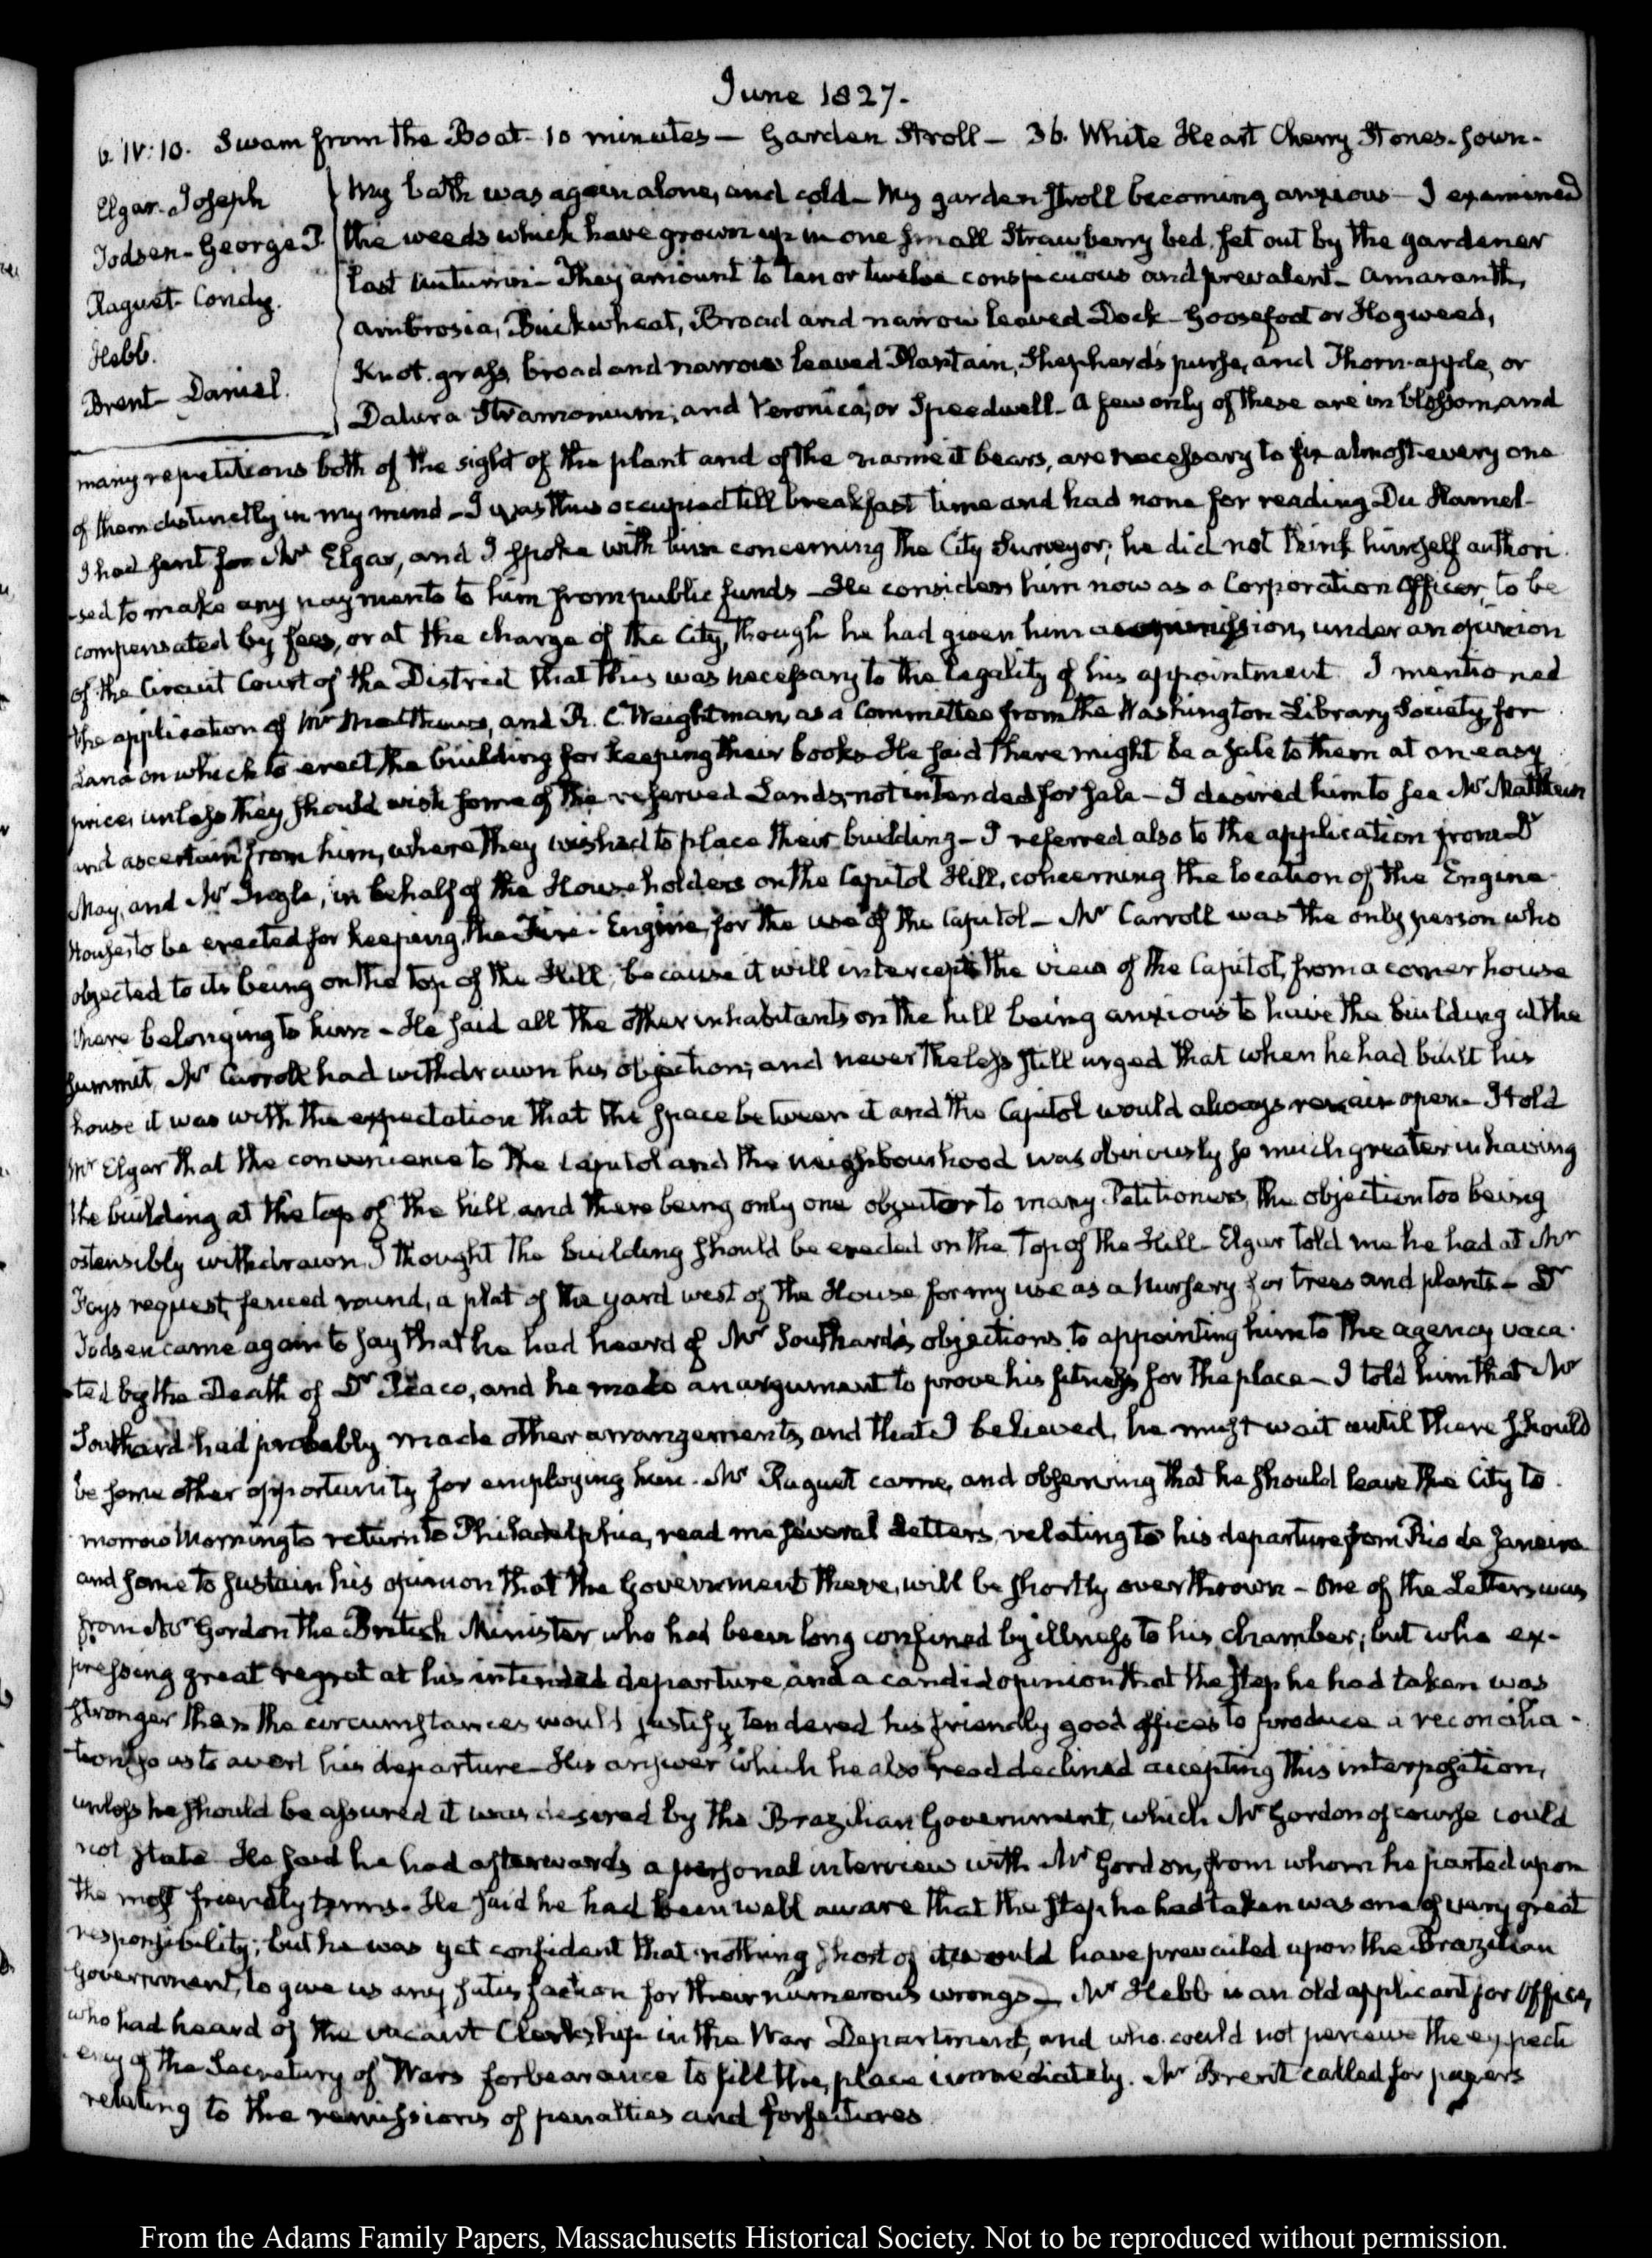 June 1827.
6. IV:10. Swam from the Boat 10 minutes — Garden Stroll — 36. White Heart Cherry Stones sown.
Elgar. Joseph
Todsen. George P.
Raguet. Condy.
Hebb.
Brent Daniel.
My bath was again alone, and cold. My garden stroll becoming anxious — I examined
the weeds which have grown up in one small Strawberry bed, set out by the gardener
last Autumn. They amount to ten or twelve conspicuous and prevalent. Amaranth,
Ambrosia, Buckwheat, Broad and narrow leaved Dock. Goosefoot or Hogweed,
Knot.grass, broad and narrow leaved Plantain, Shepherd's purse, and Thorn-apple, or
Datura Stramonium; and Veronica, or Speedwell. A few only of these are in blossom, and
many repetitions both of the sight of the plant and of the name it bears, are necessary to fix almost every one
of them distinctly in my mind — I was thus occupied till breakfast time and had none for reading Du Hamel.
I had sent for Mr Elgar, and I spoke with him concerning the City Surveyor; he did not think himself authori
-sed to make any payments to him from public funds — He considers him now as a Corporation Officer, to be
compensated by fees, or at the charge of the City, though he had given him a commission, under an opinion
of the Circuit Court of the District that this was necessary to the legality of his appointment. I mentioned
the application of Mr Matthews, and R. C. Weightman, as a Committee from the Washington Library Society, for
Land on which to erect the building for keeping their books. He said there might be a sale to them at an easy
price, unless they should wish some of the reserved Lands, not intended for sale — I desired him to see Mr Matthews
and ascertain from him, where they wished to place their building — I referred also to the application from Dr
May, and Mr Ingle, in behalf of the Householders on the Capitol Hill, concerning the location of the Engine
House to be erected for keeping the Fire-Engine, for the use of the Capitol — Mr Carroll was the only person who
objected to its being on the top of the Hill, because it will intercept the view of the Capitol, from a corner house
there belonging to him — He said all the other inhabitants on the hill being anxious to have the building at the
summit, Mr Carroll had withdrawn his objection; and nevertheless still urged that when he had built his
house it was with the expectation that the space between it and the Capitol would always remain open. I told
Mr Elgar that the convenience to the Capitol and the neighbourhood was obviously so much greater in having
the building at the top of the hill, and there being only one objector to many Petitioners, the objection too being
ostensibly withdrawn, I thought the building should be erected on the Top of the Hill. Elgar told me he had at Mr
Foys request, fenced round, a plat of the yard west of the House for my use as a Nursery for trees and plants — Dr
Todsen came again to say that he had heard of Mr Southard's objections to appointing him to the agency vaca-
ted by the Death of Dr Peaco, and he made an argument to prove his fitness for the place — I told him that Mr
Southard had probably made other arrangements, and that I believed, he must wait until there should
be some other opportunity for employing him. Mr Raguet came, and observing that he should leave the City to
morrow Morning to return to Philadelphia, read me several Letters, relating to his departure from Rio de Janeiro
and some to sustain his opinion that the Government there, will be shortly overthrown — One of the Letters was
from Mr Gordon the British Minister who had been long confined by illness to his chamber; but who ex-
pressing great regret at his intended departure, and a candid opinion that the step he had taken was
stronger than the circumstances would justify, tendered his friendly good offices to produce a reconcilia-
tion, so as to avert his departure. His answer which he also read declined accepting this interposition,
unless he should be assured it was desired by the Brazilian Government, which Mr Gordon of course could
not state. He said he had afterwards a personal interview with Mr Gordon, from whom he parted upon
the most friendly terms. He said he had been well aware that the step he had taken was one of very great
responsibility; but he was yet confident that nothing short of it, would have prevailed upon the Brazilian
Government, to give us any satisfaction for their numerous wrongs — Mr Hebb is an old applicant for Office,
who had heard of the vacant Clerkship in the War Department, and who could not perceive the expedi
ency of the Secretary of Wars forbearance to fill the place immediately. Mr Brent called for papers
relating to the remissions of penalties and forfeitures
From the Adams Family Papers, Massachusetts Historical Society. Not to be reproduced without permission.